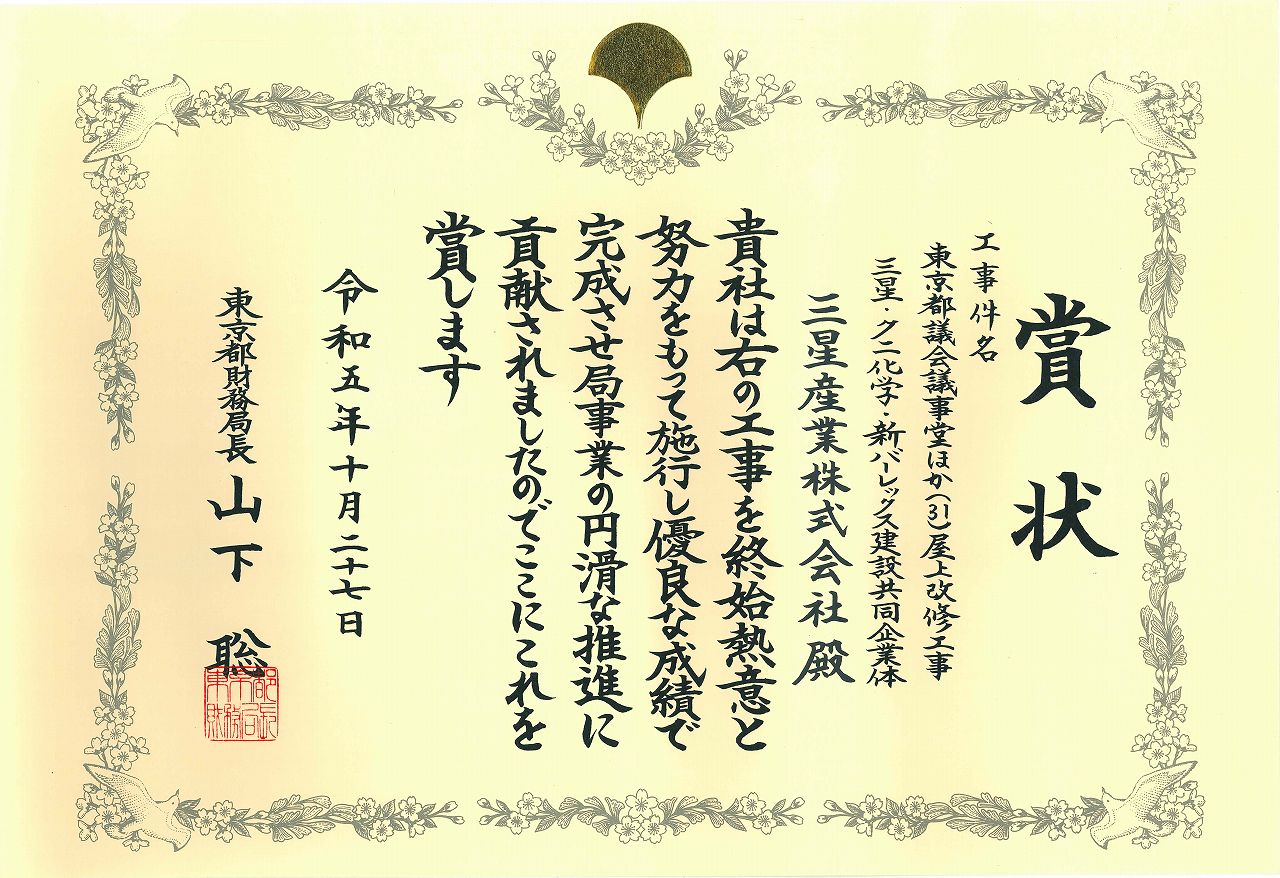 賞状
工事件名
東京都議会議事堂ほか(31)屋上改修工事
三星・クニ化学・新バーレックス建設共同企業体
三星産業株式会社殿
貴社は右の工事を終始熱意と
努力をもって施行し優良な成績で
完成させ局事業の円滑な推進に
貢献されましたのでここにこれを
賞します
令和五年十月二十七日
東京都財務局長 山下 聡
東京都財務局長